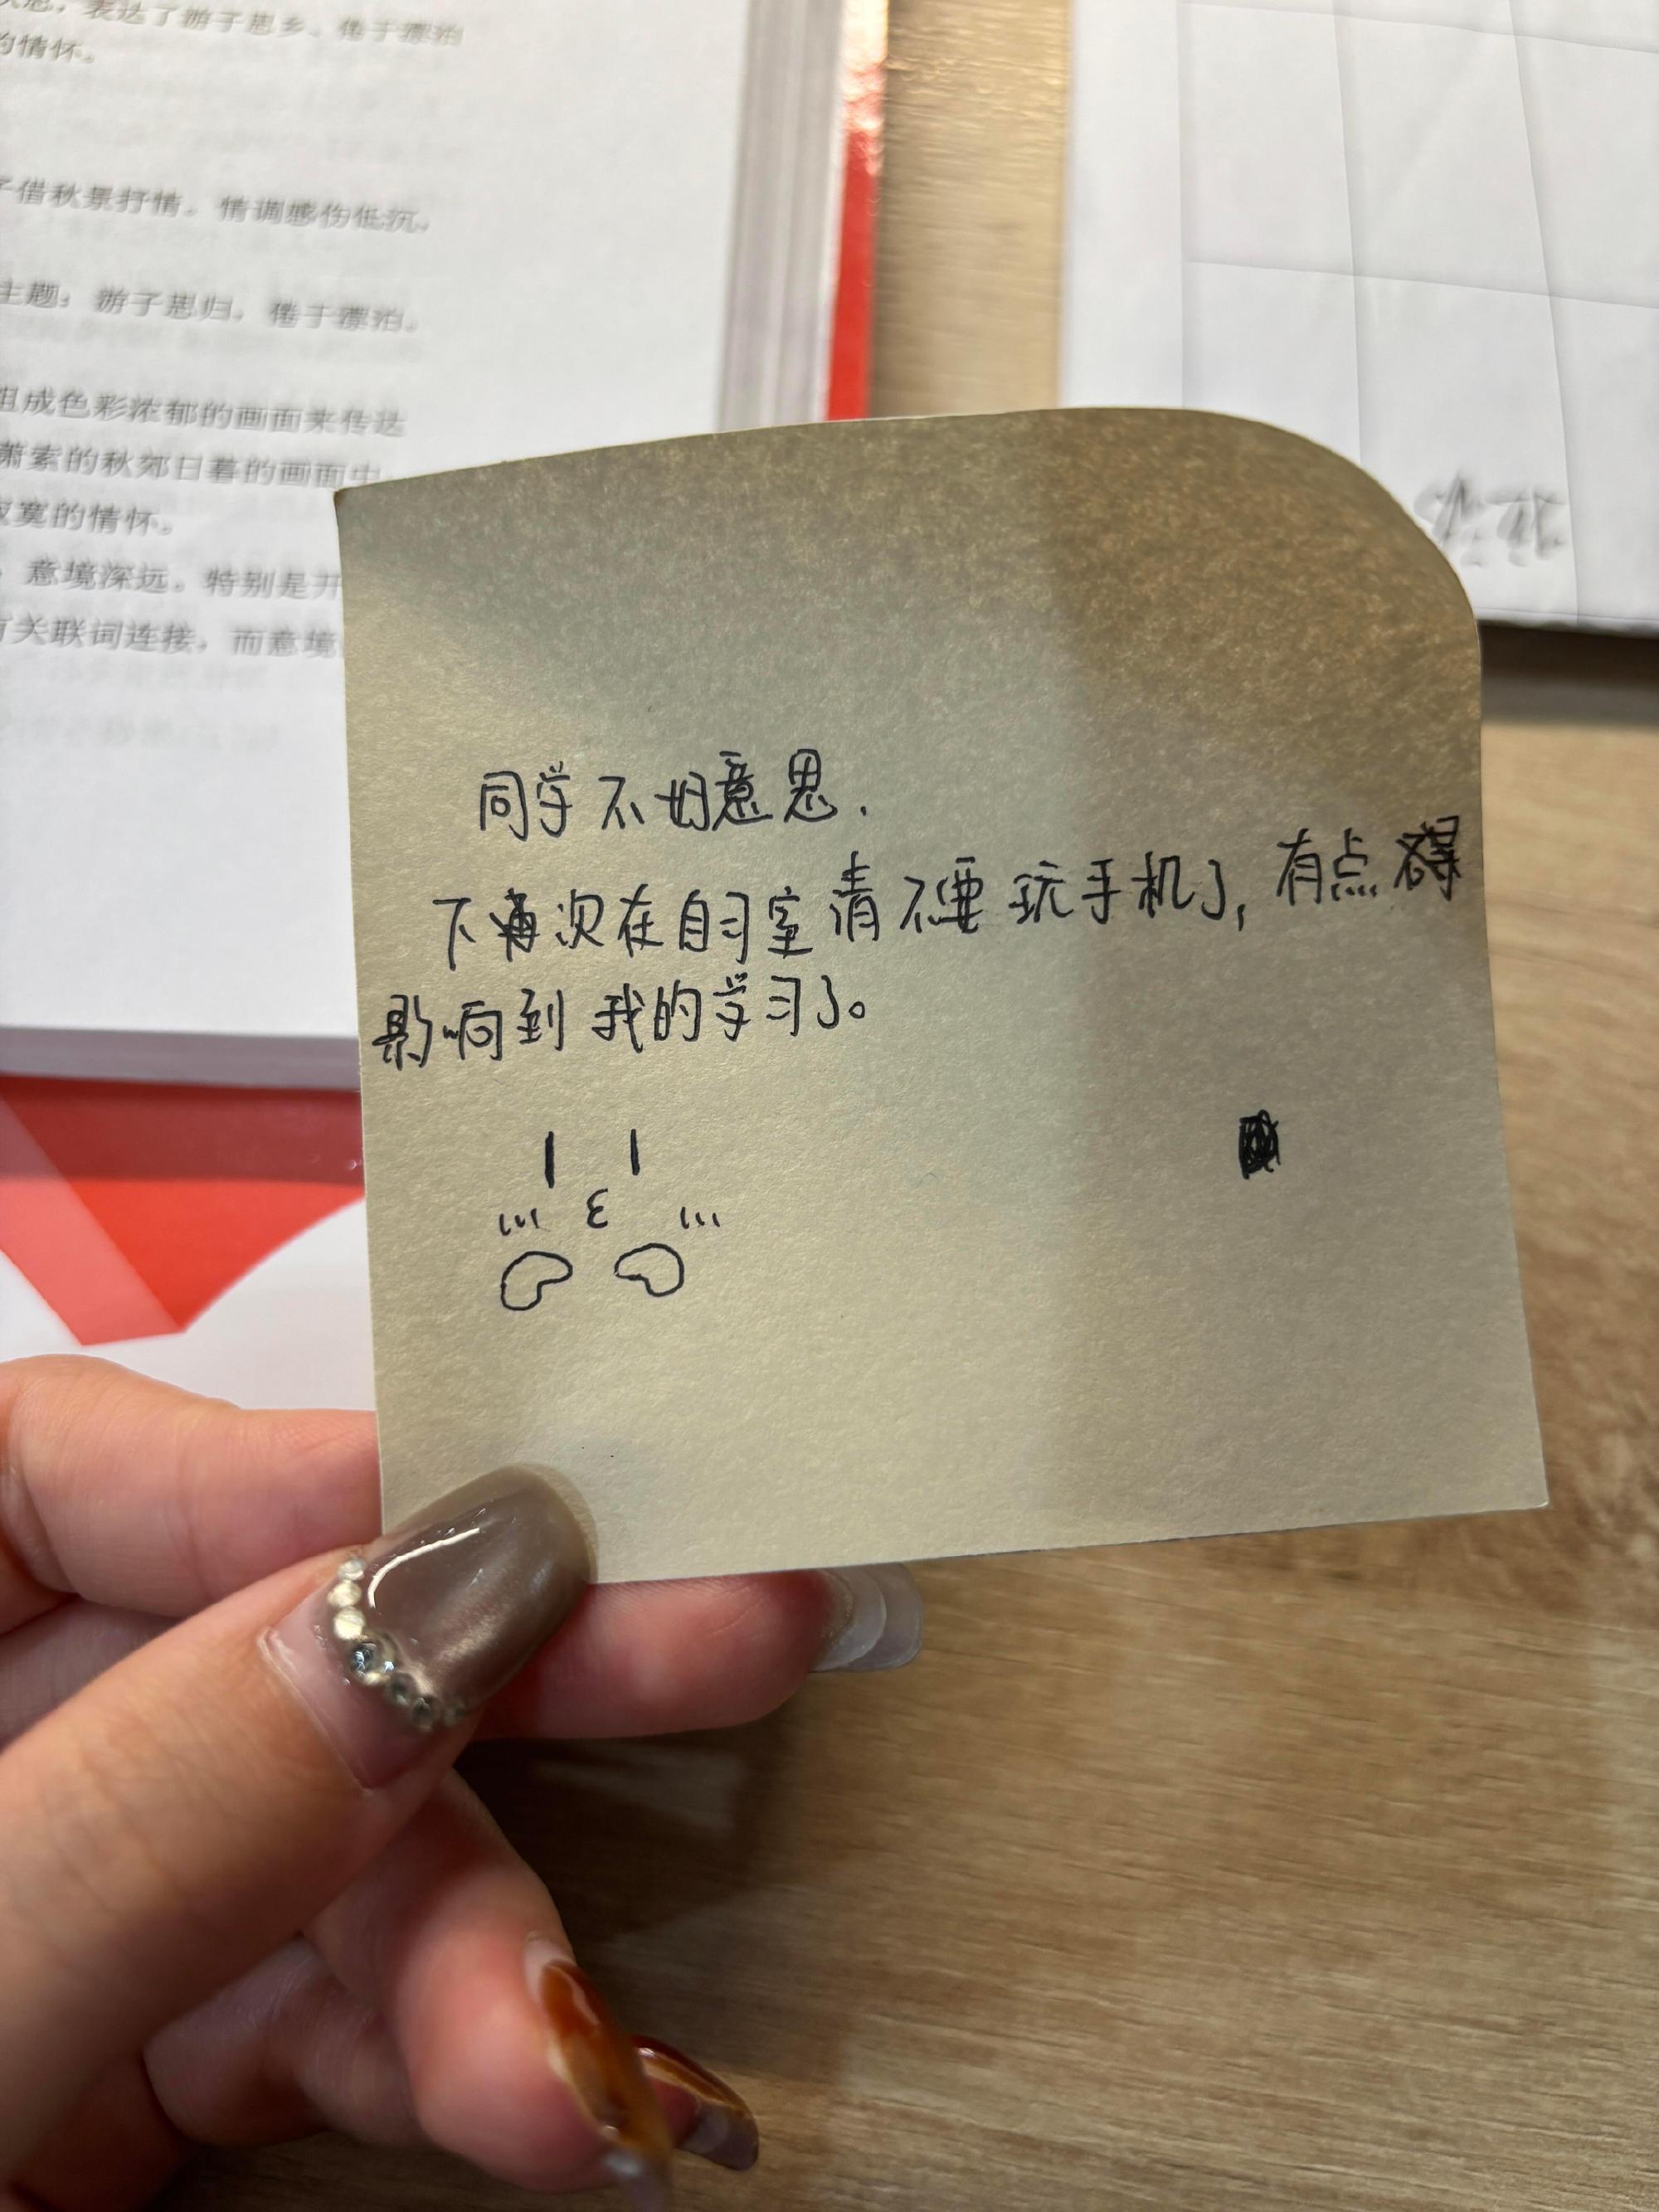 表达了游子思乡、倦于漂泊
的情怀。
借秋景抒情。情调感伤低沉。
主题：游子思归，倦于漂泊。
组成色彩浓郁的画面来传达
萧索的秋郊日暮的画面中
寂寞的情怀。
意境深远。特别是开
有关联词连接，而意境
同学不好意思.
下次在自习室请不要玩手机了，有点
影响到我的学习了。